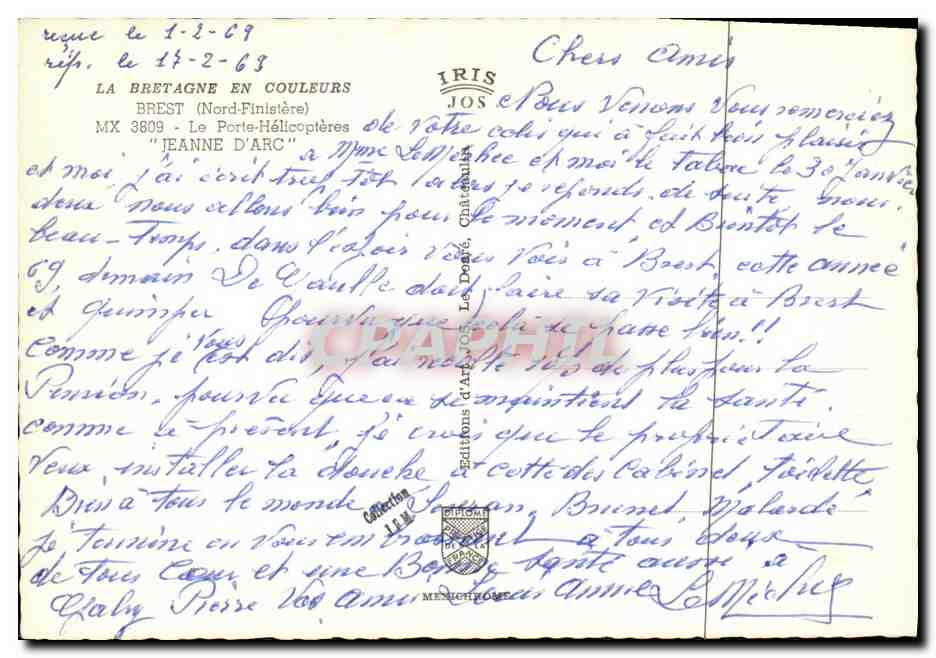 reçue le 1-2-69
rép. le 17-2-69
LA BRETAGNE EN COULEURS
BREST (Nord-Finistère)
MX 3809 - Le Porte-Hélicoptères
"JEANNE D'ARC"
IRIS
JOS
Chers Amis
Nous Venons Vous remerciez
de Votre colis qui à fait bien plaisir
a Mme Le et moi le Tabac le 30 Janvier
et moi, j'ai écrit trop tôt alors je reponds de suite, nous
deux nous allons bien pour le moment et Bientôt le
beau-Temps, dans l'espoir Vous Vois à Brest cette année
69, demain De Gaulle doit faire sa Visite à Brest
et Quimper pourvu que cela se passe bien!!
comme je Vous est dit, j'ai de plus pour la
Pension, pourvu que se maintient la santé
comme à présent, je crois que le propriétaire
Veux installer la douche à cotté des Cabinet Toilette
Bies à tous le monde Brunet Malardé
je Termine en Vous embrassent à Tous deux
de Tous Cœur et une Bonne santé aussi à
Gaby Pierre Vos Amis Louis Annie Le
Editions d'Art JOS Le Doaré, Châteaulin
CPAPHIL
Collection
DIPLOME
FRANCE
MEXICHROME